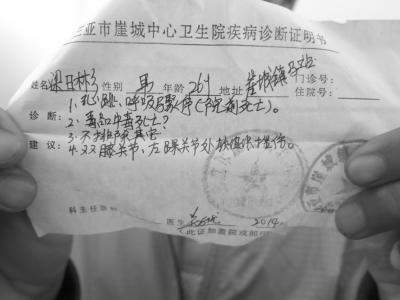 三亚市崖城中心卫生院疾病诊断证明书
姓名 梁日彬 性别 男 年龄 26岁 地址 崖城镇 门诊号:
住院号:
诊断: 1. 心跳、呼吸骤停(院前死亡)。
2. 毒品中毒死亡?
3. 不排除其它
建议: 4. 双膝关节、左踝关节处软组织挫伤。
科主任
医生 2014
(此证加盖院戒部